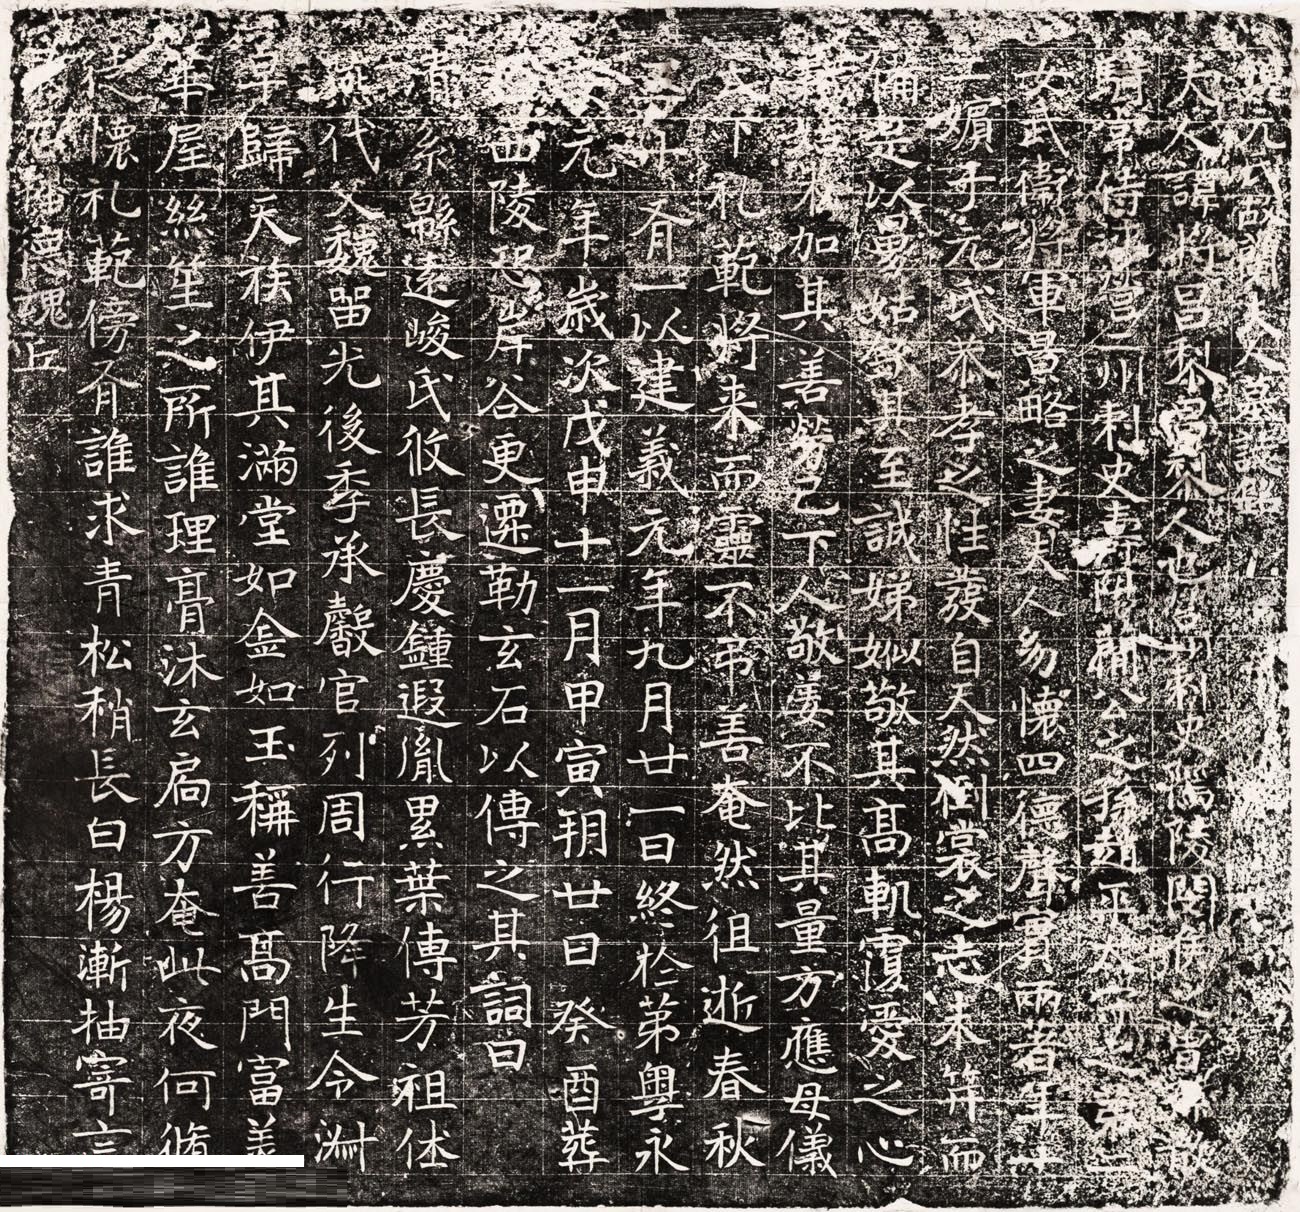 魏元氏故蘭夫人墓誌銘
夫人諱將昌黎昌黎人也營州刺史儒陵閔侯之曾孫散
騎常侍 營二州刺史 公之孫趙平太守之第二
女武衛將軍景略之妻夫人幼懷四德聲實兩著年十
一嬪于元氏恭孝之性發自天然倒裳之志未笄而
備是以舅姑 其至誠娣姒敬其高軌覆愛之心
加其善勞己下人敬妻不比其量方應母儀
下礼範將來而靈不弔善奄然徂逝春秋
廿有一以建義元年九月廿一日終於第粵永
元年歲次戊申十一月甲寅朔廿日癸酉葬
西陵恐岸谷更遷勒玄石以傳之其詞曰
系緜遠峻氏攸長慶鍾遐胤累葉傳芳祖休
代父魏留光後季承馨官列周行降生令淑
早歸天族伊其滿堂如金如玉稱善高門富義
華屋絲笙之所誰理膏沐玄扃方奄此夜何脩
徒懷礼範傍有誰求青松稍長白楊漸抽寄言
德魂丘